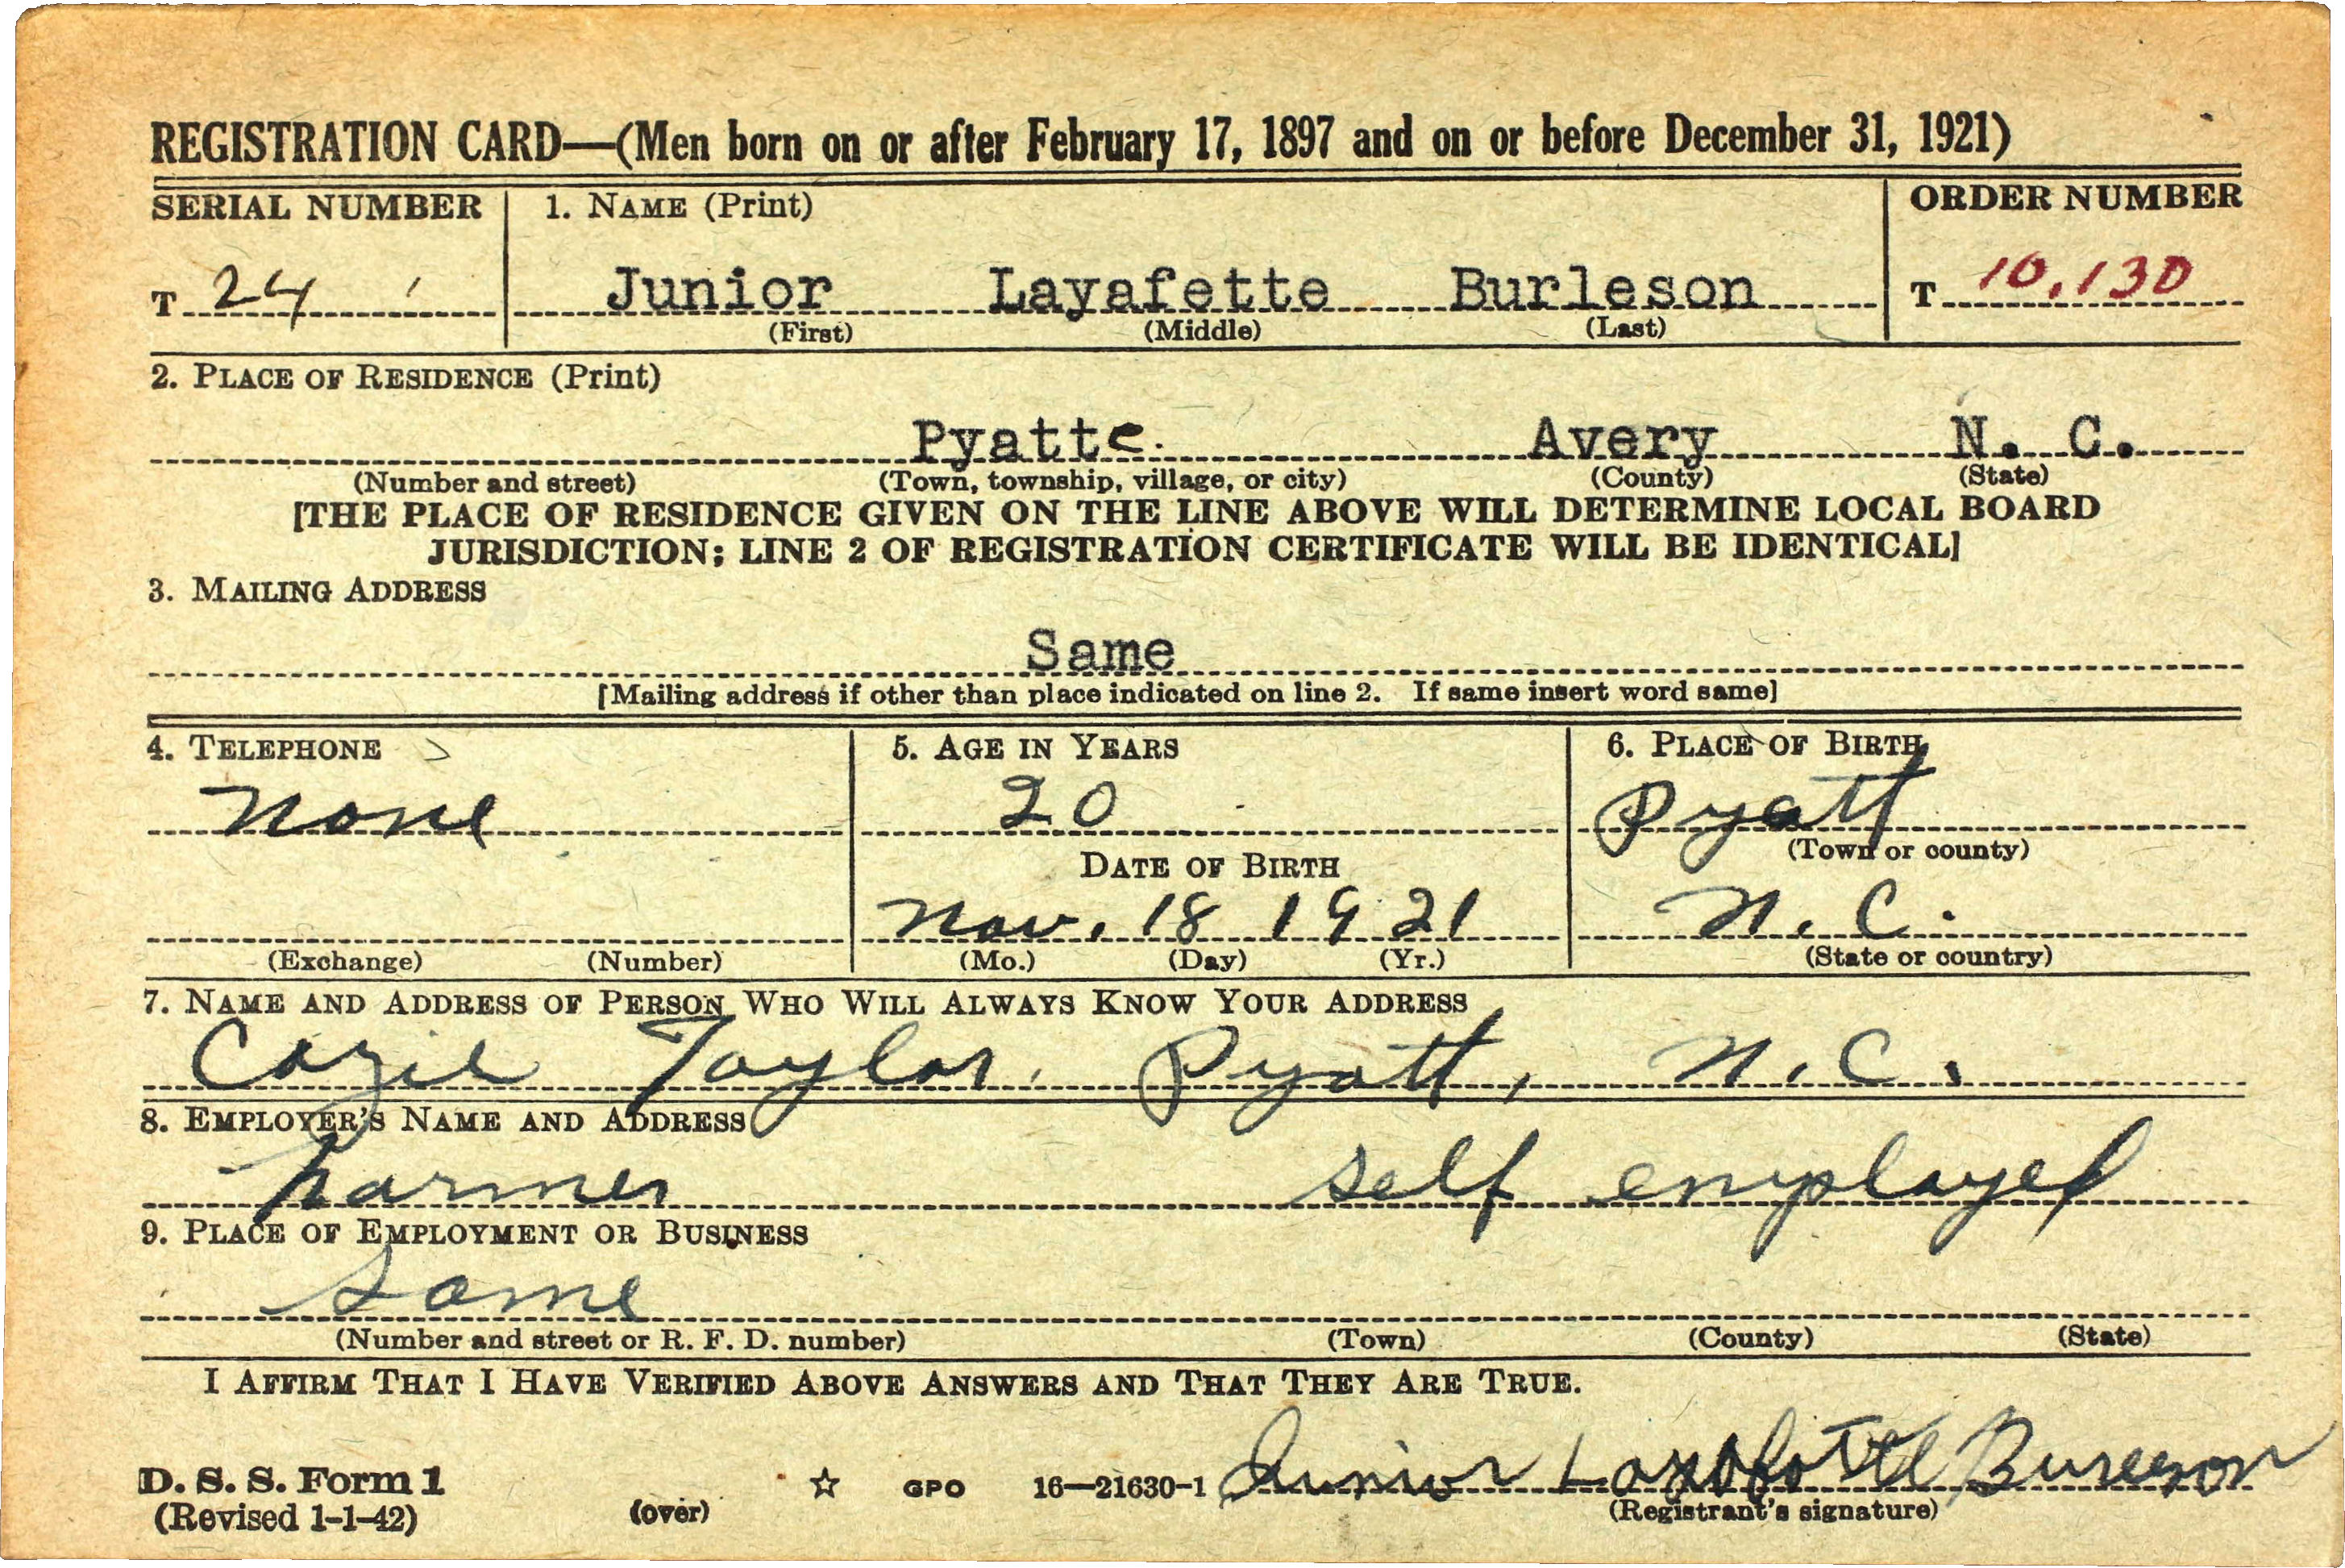 REGISTRATION CARD—(Men born on or after February 17, 1897 and on or before December 31, 1921)
SERIAL NUMBER 1. NAME (Print) ORDER NUMBER
T 24 Junior Layafette Burleson T 10,130
(First) (Middle) (Last)
2. PLACE OF RESIDENCE (Print)
Pyatte. Avery N. C.
(Number and street) (Town, township, village, or city) (County) (State)
[THE PLACE OF RESIDENCE GIVEN ON THE LINE ABOVE WILL DETERMINE LOCAL BOARD
JURISDICTION; LINE 2 OF REGISTRATION CERTIFICATE WILL BE IDENTICAL]
3. MAILING ADDRESS
Same
[Mailing address if other than place indicated on line 2. If same insert word same]
4. TELEPHONE 5. AGE IN YEARS 6. PLACE OF BIRTH
None 20 Pyatt
DATE OF BIRTH (Town or county)
Nov. 18 1921 N. C.
(Exchange) (Number) (Mo.) (Day) (Yr.) (State or country)
7. NAME AND ADDRESS OF PERSON WHO WILL ALWAYS KNOW YOUR ADDRESS
Cozie Taylor. Pyatt, N. C.
8. EMPLOYER'S NAME AND ADDRESS
Farmer self employed
9. PLACE OF EMPLOYMENT OR BUSINESS
Same
(Number and street or R. F. D. number) (Town) (County) (State)
I AFFIRM THAT I HAVE VERIFIED ABOVE ANSWERS AND THAT THEY ARE TRUE.
D. S. S. Form 1 ☆ GPO 16—21630-1 Junior Burleson
(Revised 1-1-42) (over) (Registrant's signature)